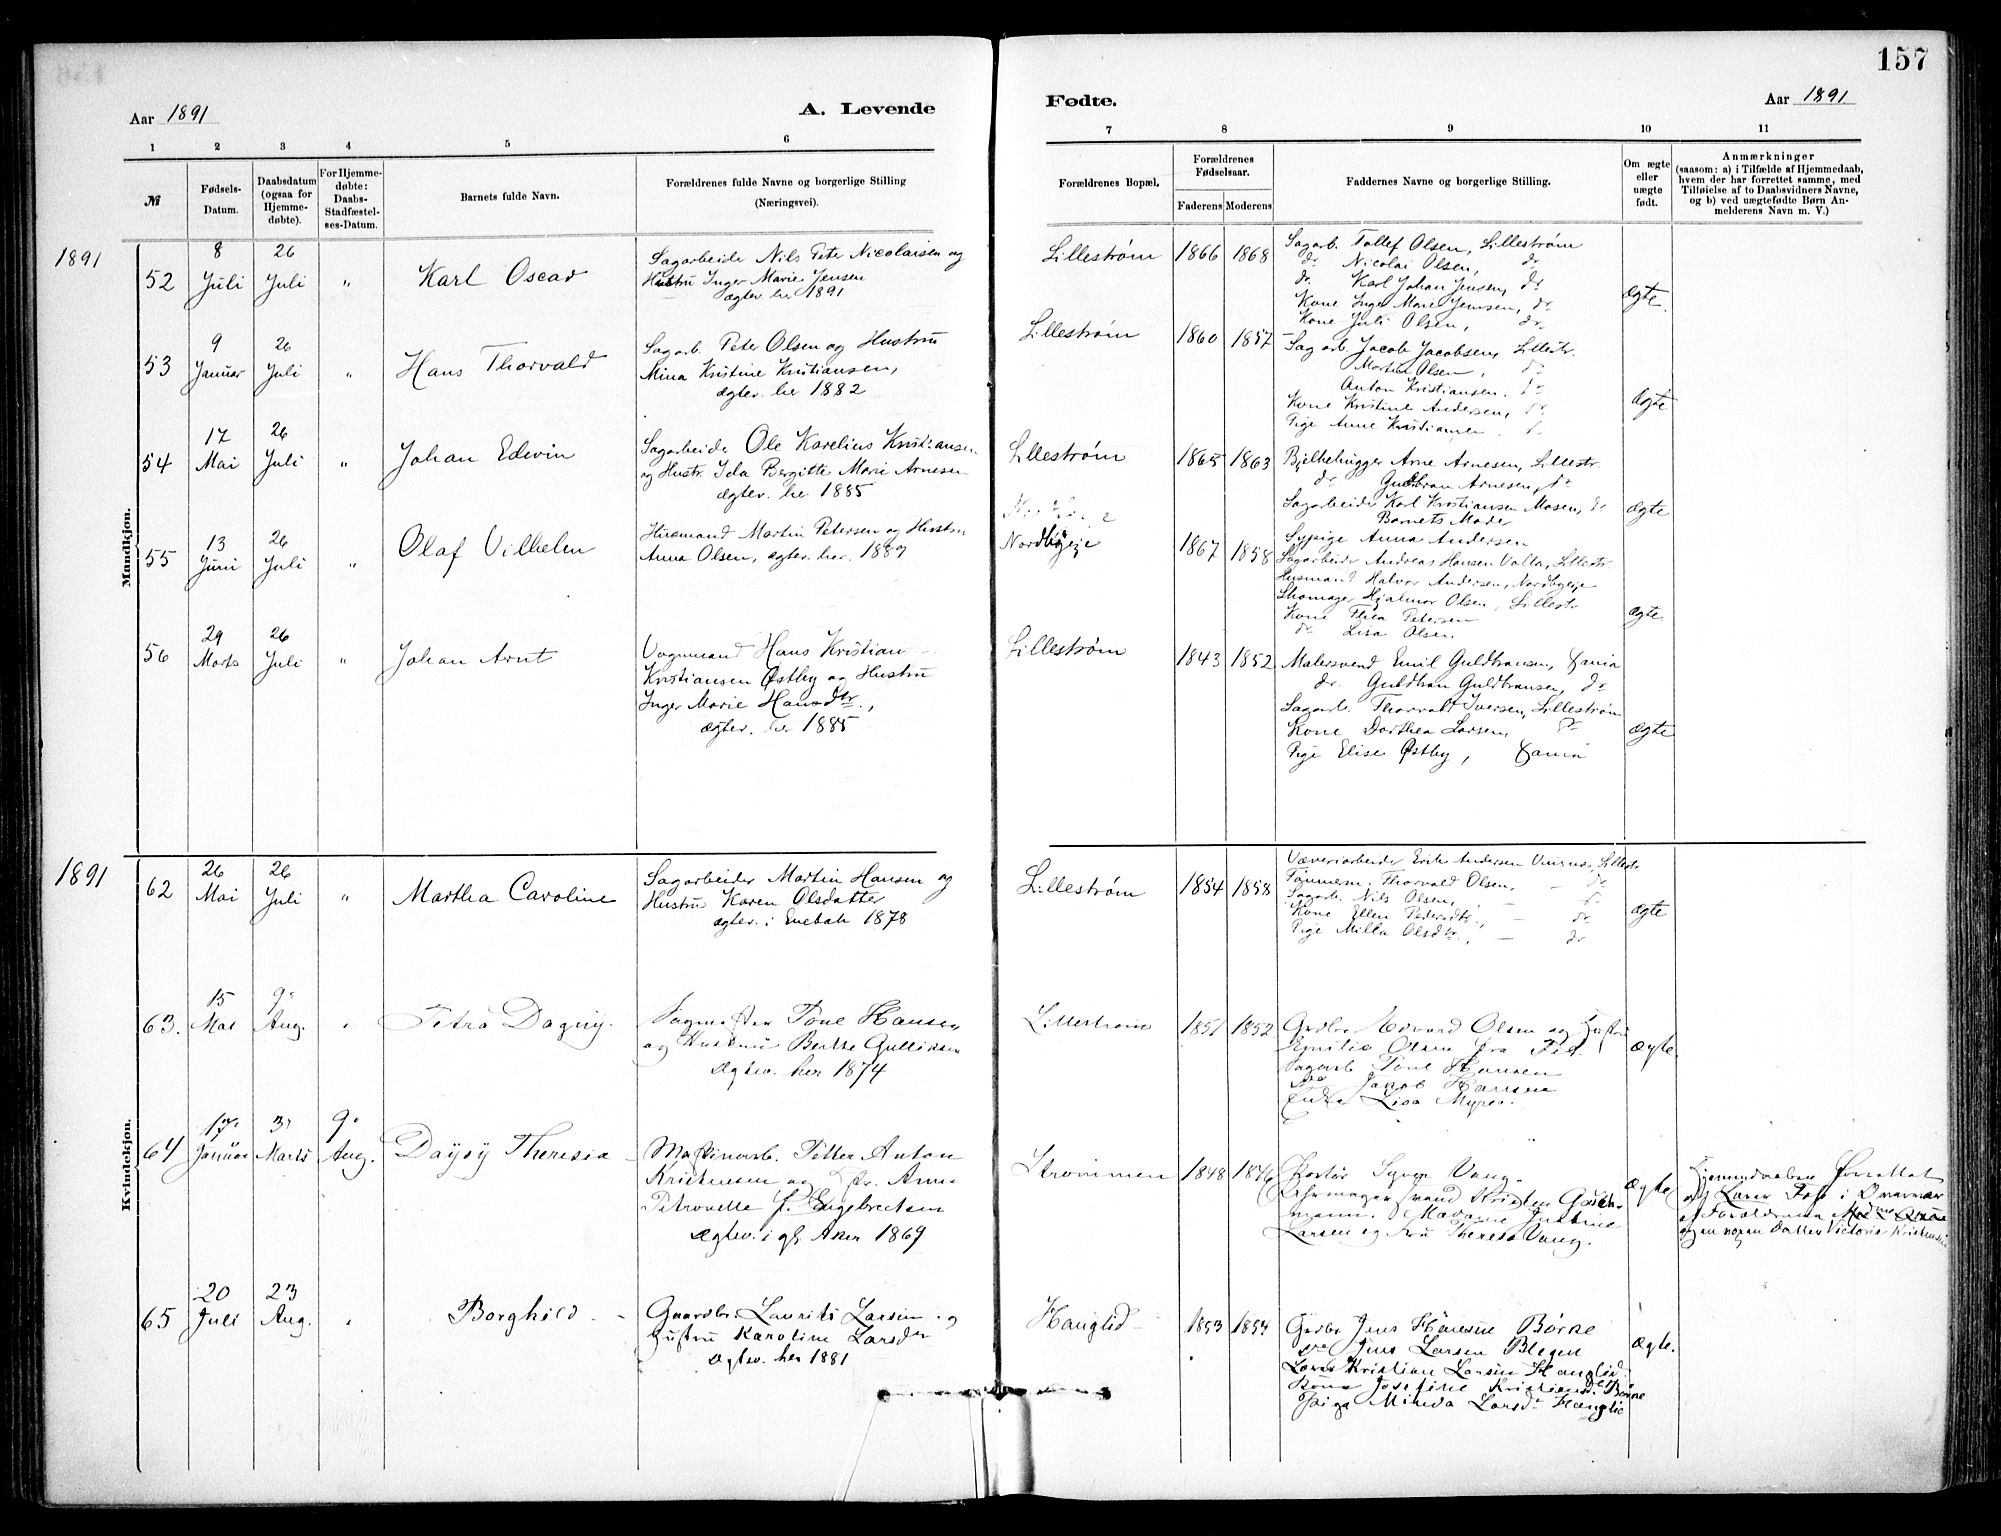 157
Aar 1891
A. Levende
Fødte.
Aar 1891
1 2 3 4 5 6 7 8 9 10 11
№
Fødsels-
Datum.
Daabsdatum
(ogsaa for
Hjemme-
døbte).
For Hjemme-
døbte:
Daabs-
Stadfæstel-
ses-Datum.
Barnets fulde Navn.
Forældrenes fulde Navne og borgerlige Stilling
(Næringsvei).
Forældrenes Bopæl.
Forældrenes
Fødselsaar.
Faderens Moderens
Faddernes Navne og borgerlige Stilling.
Om ægte
eller
uægte
født.
Anmærkninger
(saasom: a) i Tilfælde af Hjemmedaab,
hvem der har forrettet samme, med
Tilføielse af to Daabsvidners Navne,
og b) ved uægtefødte Børn An-
melderens Navn m. V.)
Mandkjøn.
1891
52
8
Juli
26
Juli
"
Karl Oscar
Sagarbeider Nils Peter Nicolaisen og
Hustru Inger Marie Jensen
ægtev. her 1891
Lillestrøm 1866 1868
Sagarb. Tollef Olsen, Lillestrøm
dr. Nicolai Olsen, dr
dr. Karl Johan Jensen, dr
Kone Inger Marie Jensen, dr.
Kone Juli Olsen, dr.
Ægte.
53
9
Januar
26
Juli
"
Hans Thorvald
Sagarb. Peter Olsen og Hustru
Mina Kristine Kristiansen,
ægtev. her 1882
Lillestrøm 1860 1857
Sagarb. Jacob Jacobsen, Lillestr.
Martin Olsen, dr
Anton Kristiansen, dr
Kone Kristine Andersen, dr.
Pige Anne Kristiansen
Ægte
54
17
Mai
26
Juli
"
Johan Edwin
Sagarbeider Ole Karelius Kristiansen
og Hustr. Ida Bergitte Marie Arnesen
ægtev. her 1885
Lillestrøm 1865 1863
Bjelkehugger Arne Arnesen, Lillestr.
dr Guldbran Arnesen, dr
Sagarbeider Karl Kristiansen Mosen, dr
Barnets Moder
Sypige Anna Andersen
Ægte
55
13
Juni
26
Juli
"
Olaf Vilhelm
Husmand Martin Petersen og Hustru
Anna Olsen, ægtev. her. 1889
Nordbyeje 1867 1858
Sagarbeider Andreas Hansen Valla, Lillestr.
Husmand Halvor Andersen, Nordbyeje
Skomager Hjalmar Olsen, Lillestr
Kone Thea Petersen
dr Lisa Olsen.
Ægte
56
29
Marts
26
Juli
"
Johan Arnt
Vognmand Hans Kristian
Kristiansen Østby og Hustru
Inger Marie Hansdtr.,
ægtev. her 1885
Lillestrøm 1843 1852
Malersvend Emil Guldbransen, Xania
dr. Guldbran Guldbransen, dr
Sagarb. Thorvald Iversen, Lillestrøm
Kone Dorthea Larsen, dr
Pige Elise Østby, Xania
Ægte
Kvindekjøn.
1891
62
26
Mai
26
Juli
"
Martha Caroline
Sagarbeider Martin Hansen og
Hustru Karen Olsdatter
ægtev. i Enebak 1878
Lillestrøm 1854 1858
Væveriarbeider Erik Andersen Lillestr
Tømmerm. Thorvald Olsen, — dr
Sagarb. Nils Olsen, — dr
Kone Ellen Pedersdtr, — dr
Pige Milla Olsdtr., — dr
Ægte
63.
15
Mai
9
Aug.
"
Petra Dagny.
Sagmester Tone Hansen
og Hustru Berthe Gulliksen
Ægtev. her 1874
Lillestrøm 1851 1852
Grdbr. Edvard Olsen og Hustru
Emilie Olsen fra
Sagarb Tone Hansen
do Jakob Hansen
Lisa Myrer.
Ægte.
64
17
Januar
31
Marts
9
Aug.
Daysy Theresia
Maskinarb. Petter Anton
Kristensen og Hr. Anne
Petronelle f. Engebretsen
Ægtev. i gl. Aker 1869
Strømmen 1848 1846
Syver Vang.
Urmager Kristen
mann. Madame Justine
Larsen og Fru Theresa Vang.
Ægte
Hjemmedaaben forrettet
af Lærer Foss i
af Forældrene
og en voxen Datter Victoria Kristensen
65
20
Juli
23
Aug.
"
Borghild
Gaardbr. Laurits Larsen og
Hustru Karoline Larsdtr
Ægtev. her 1881
Hanglid 1853 1854
Grdbr Jens Hansen Børke
do Jens Larsen Blegen
Kristian Larsen Hanglid.
Kone Josefine Kristiansd. Børke
Paige Minda Larsdr Hanglid
Ægte.